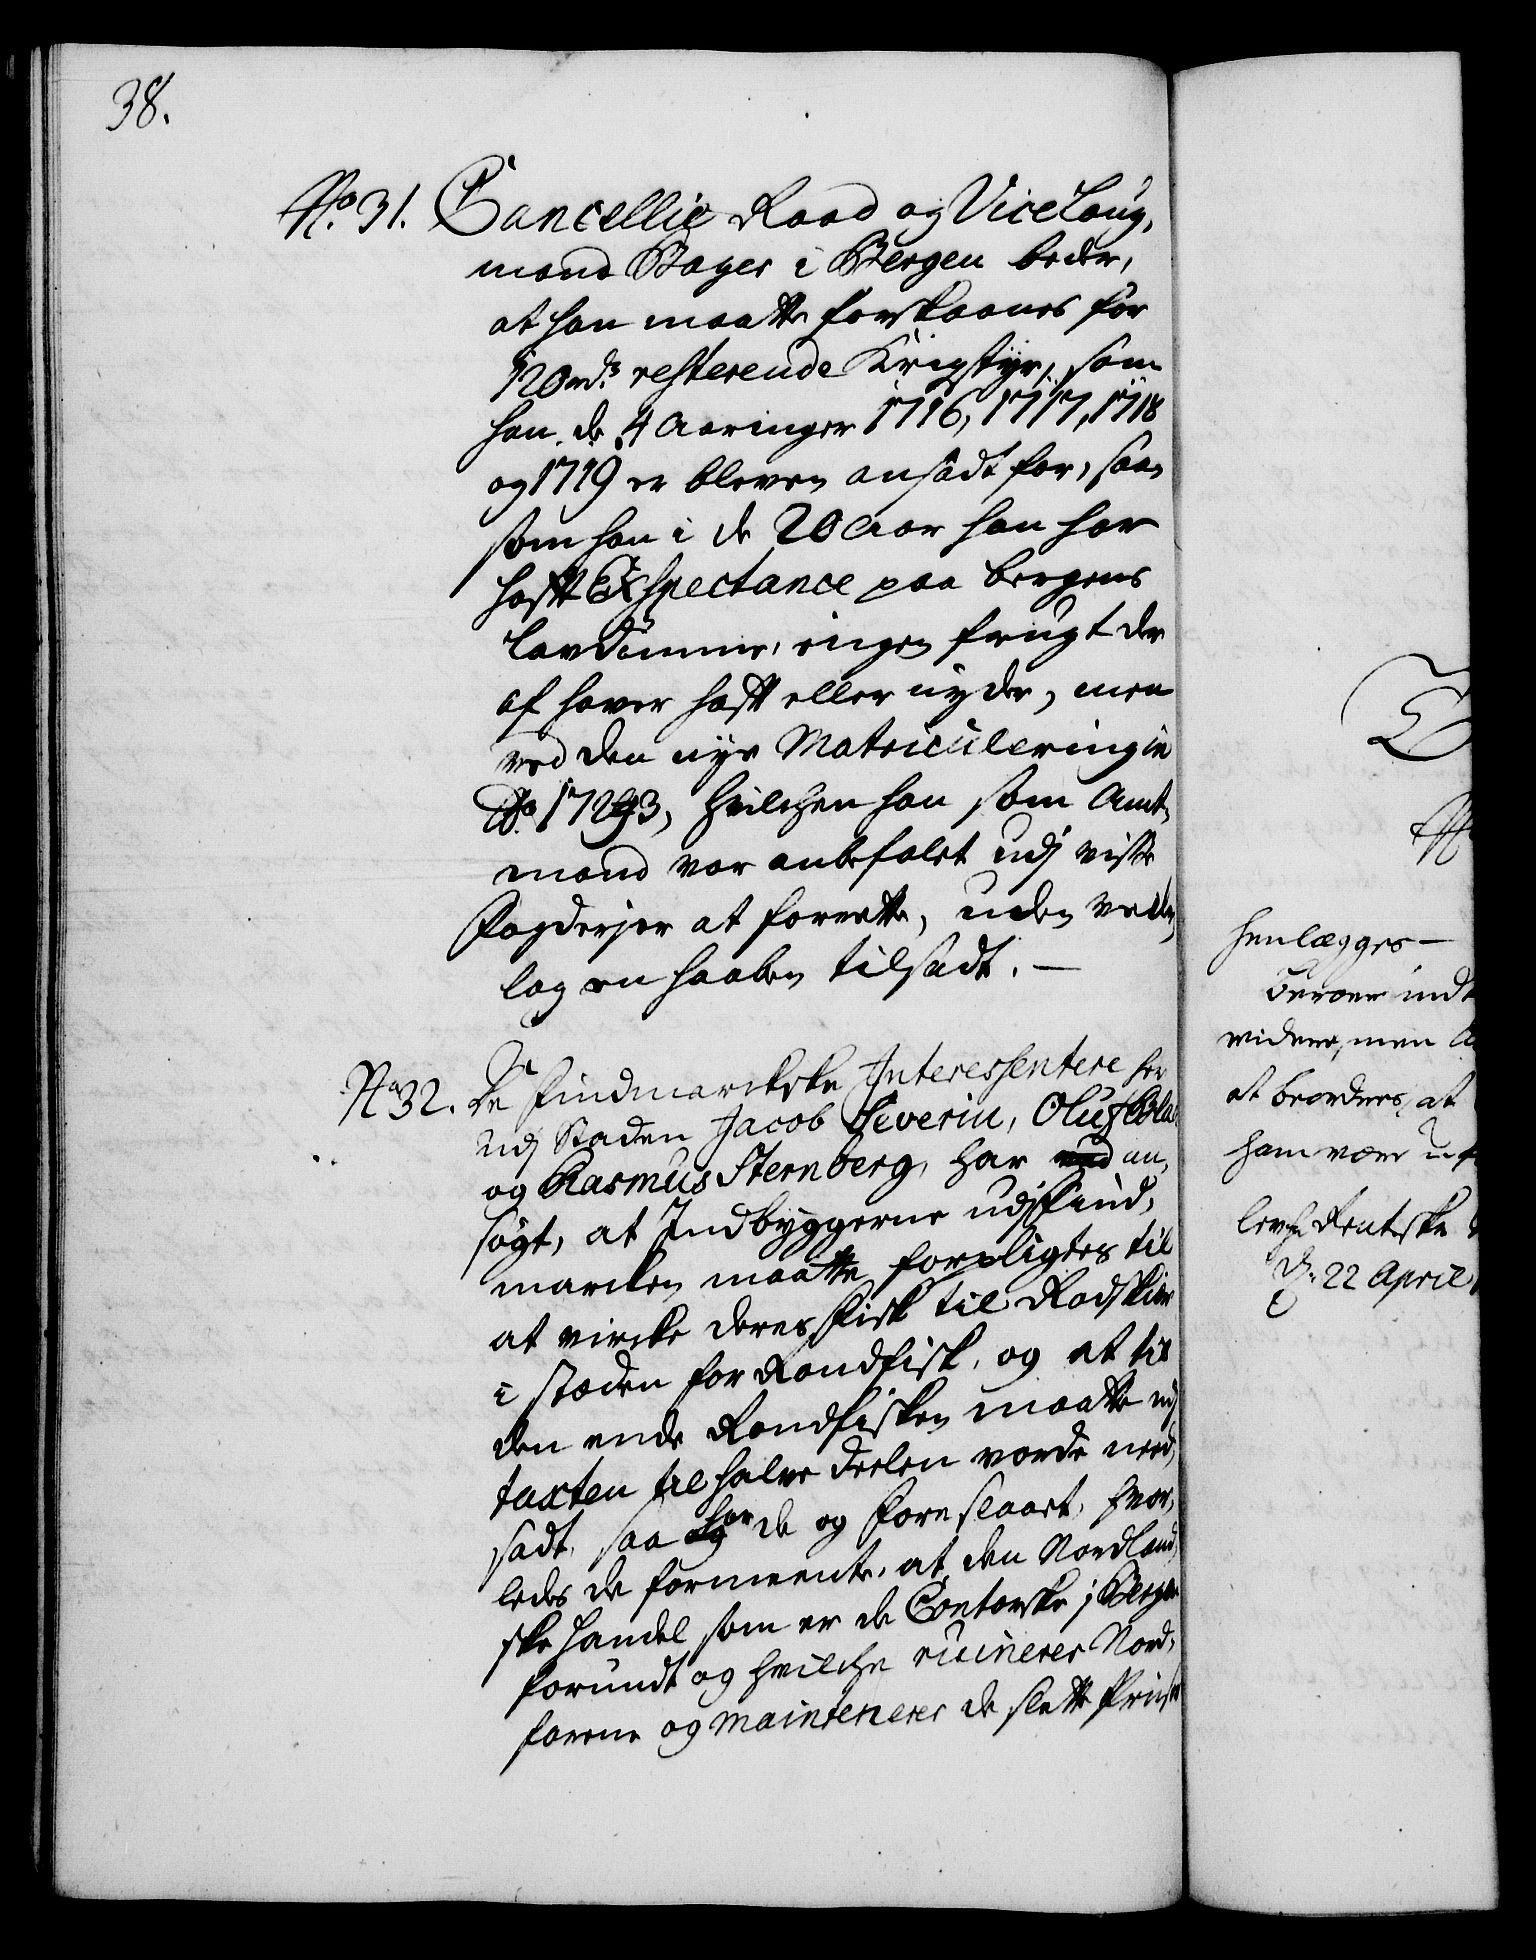 38.
No. 31. Cancellie Raad og Vice Laug,
mand Bager i Bergen beder,
at han maatte forskaanes for
120 rd.s resterende Krigstyr, som
han de 4 Aaringer 1716, 1717, 1718
og 1719 er bleven ansadt for, saa,
som han i de 20 Aar han har
hafft Exspectance paa bergens
Lavdømme, ingen frugt der
af haver hafft eller nyder, men
ved den nye Matriculering in
Ao. 1723, hvilchen han som Amt,
mand var anbefalet udj visse
Fogderjer at forrette, uden veder,
lag en haaben tilsadt. —
No 32. De Findmarckske Interessentere her
udj Staden Jacob Severin, Oluf Blach
og Rasmus Sternberg, har an,
søgt, at Indbyggerne udj Find,
marcken maatte forpligtes til
at vircke deres Fisk til Rodskier
i stæden for Rondfisk, og at til
den ende Rondfisken maatte udj
taxten til halve deelen vorde need,
sadt, saa har de og forestaaet, hvor,
ledes de formeente, at den Nordland,
ske handel, som er de Contorske j Bergen
forundt og hvilche ruinerer Nord,
farene og mainterer de slette Priser
henlægges —
indt
videre, men
at beordres, at
ham være
Rentske
D. 22 April